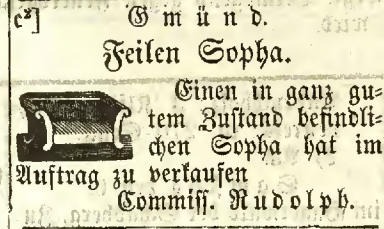 c²] Gmünd.
Feilen Sopha.
Einen in ganz gu=
tem Zustand befindli=
chen Sopha hat im
Auftrag zu verkaufen
Commiss. Rudolph.